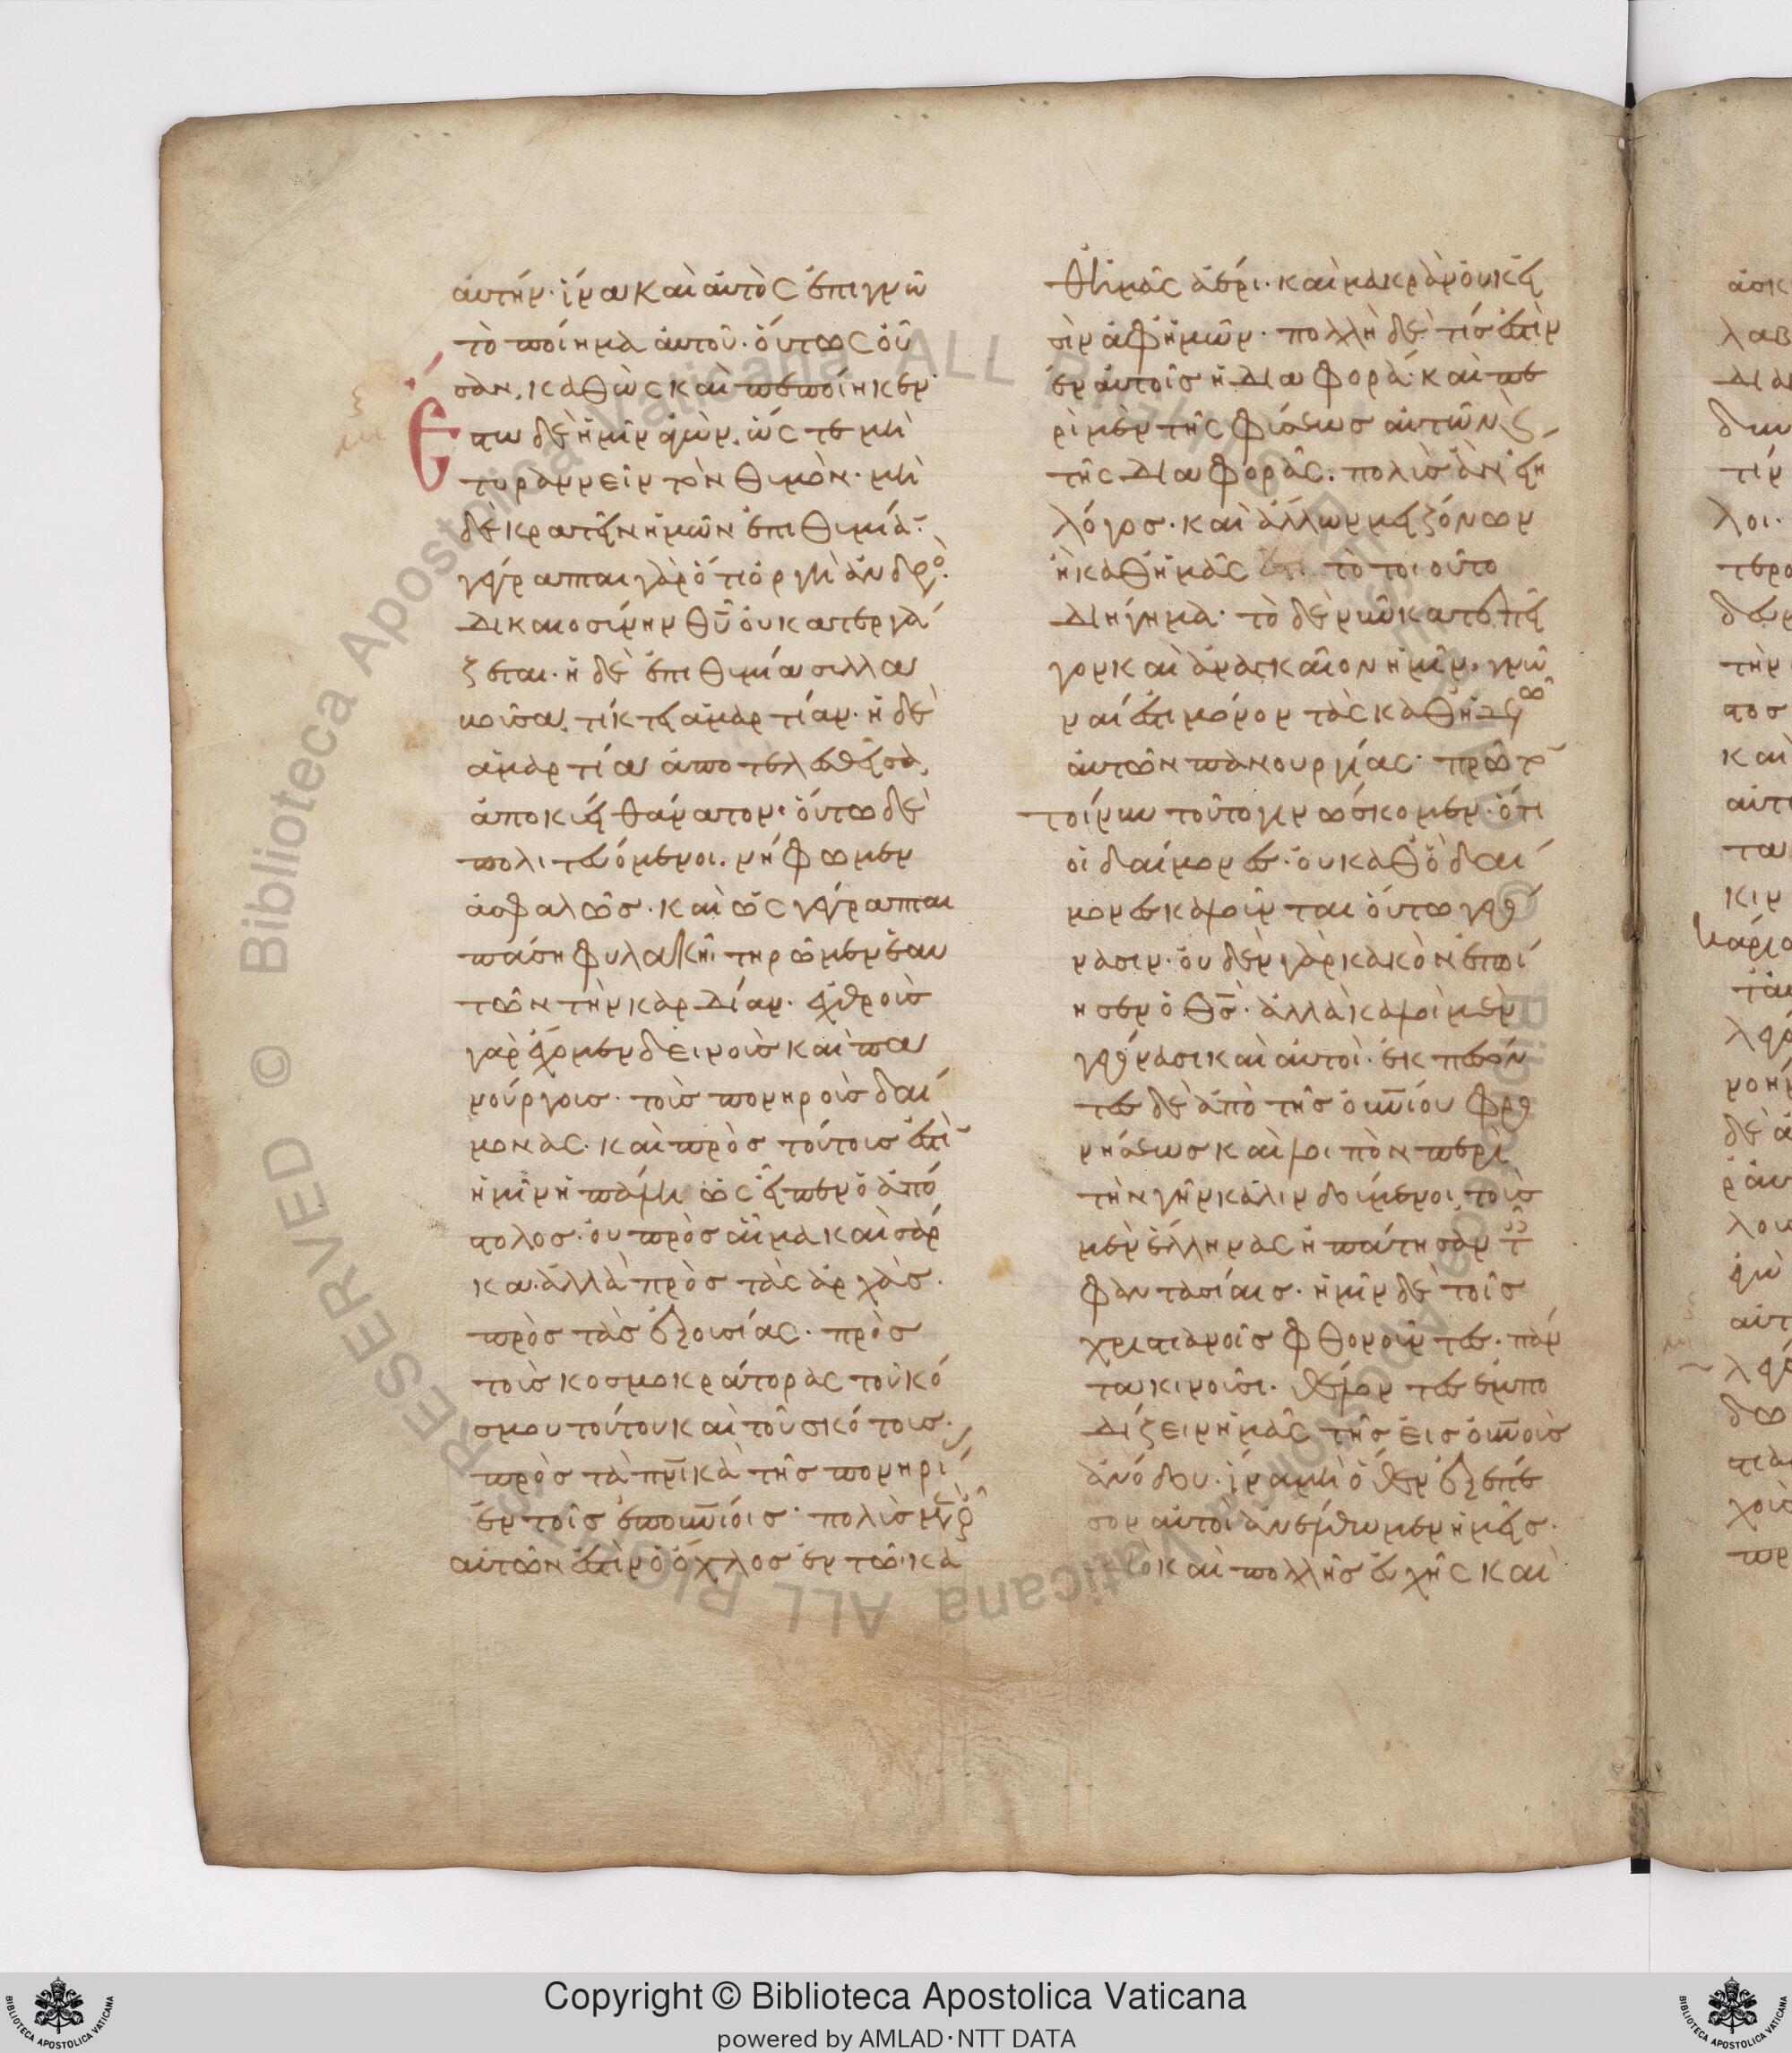 αὐτήν· ἵνα καὶ αὐτὸς ἐπιγνῶ
τὸ ποίημα αὐτοῦ· οὕτως οὖ
σαν, καθὼς καὶ πεποίηκεν·
Ἔστω δὲ ἡμῖν ἀγὼν, ὥστε μὴ
τυραννεῖν τὸν θυμὸν· μὴ
δὲ κρατεῖν ἡμῶν ἐπιθυμία·
γέγραπται γὰρ ὅτι ὀργὴ ἀνδρὸ
δικαιοσύνην θυ οὐ κατεργά
ζεται· ἡ δὲ ἐπιθυμία συλλα
βοῦσα, τίκτει ἁμαρτίαν· ἡ δὲ
ἁμαρτία ἀποτελεσθεῖσα,
ἀποκύει θάνατον· οὕτω δὲ
πολιτευόμενοι. νήφωμεν
ἀσφαλῶς· καὶ ὡς γέγραπται
πάση φυλακῆ τηρῶμεν ἑαυ
τῶν τὴν καρδίαν· ἐχθροὺς
γὰρ ἔχομεν δεινοὺς καὶ πα
νούργους· τοὺς πονηροὺς δαί
μονας· καὶ πρὸς τούτους ἐστὶ
ἡμῖν ἡ πάλη ὡς εἶπεν ὁ ἀπό
στολος· οὐ πρὸς αἷμα καὶ σάρ
κα· ἀλλὰ πρὸς τὰς ἀρχὰς·
πρὸς τὰς ἐξουσίας· πρὸς
τοὺς κοσμοκράτορας τοῦ κό
σμου τούτου καὶ τοῦ σκότους·
πρὸς τὰ πνικὰ τῆς πονηρί
ἐν τοῖς ἐπουνίοις· πολὺς μὲν
αὐτῶν ἐστὶν ὁ ὄχλος ἐν τῶ κα
θ ἡμᾶς ἀέρι· καὶ μακρὰν οὐκ εἰ
σὶν ἀφ ἡμῶν· πολλὴ δέ τις ἐστὶν
ἐν αὐτοῖς ἡ διαφορά· καὶ πε
ρὶ μὲν τῆς φύσεως αὐτῶν ϗ
τῆς διαφορᾶς. πολὺς ἂν εἴη
λόγος· καὶ ἄλλων μειζόνων
ἢ καθ ἡμᾶς τὸ τοιοῦτο
διήγημα· τὸ δὲ νῦν κατεπεῖ
γον καὶ ἀναγκαῖον ἡμῖν. γνῶ
ναί ἐστι μόνον τὰς καθ ἡμῶ
αὐτῶν πανουργίας· πρῶτο
τοίνυν τοῦτο γινώσκομεν· ὅτι
οἱ δαίμονες· οὐ καθ ὃ δαί
μονες καλοῦνται οὕτω γεγό
νασιν· οὐδὲν γὰρ κακὸν ἐποί
ησεν ὁ θς· ἀλλὰ καλοὶ μὲν
γεγόνασι καὶ αὐτοὶ· ἐκπεσόν
τες δὲ ἀπὸ τῆς οὐνίου φρο
νήσεως καὶ λοιπὸν περὶ
τὴν γῆν καλινδούμενοι τοὺς
μὲν ἕλληνας ἠπάτησαν τ
φαντασίαις· ἡμῖν δὲ τοῖς
χριστιανοῖς φθονοῦντες. πάν
τα κινοῦσι. θέλοντες ἐμπο
δίζειν ἡμᾶς τῆς εἰς οὐνοὺς
ἀνόδου· ἵνα μὴ ὅθεν ἐξέπε
σον αὐτοὶ ἀνέλθωμεν ἡμεῖς·
καὶ πολλῆς εὐχῆς καὶ